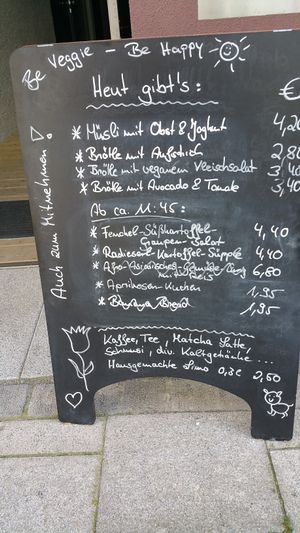 Be Veggie - Be Happy
Heut gibt's:
€
* Müsli mit Obst & Joghurt 4,20
* Brötle mit Aufstrich 2,80
* Brötle mit veganem Vleischsalat 3,40
* Brötle mit Avocado & Tomate 3,40
Ab ca. 11:45:
* Fenchel-Süßkartoffel- 4,40
Graupen-Salat
* Radieserl-Kartoffel-Süpple 4,40
* Afro-Asiatisches 6,80
mit Reis
* Aprikosen-Kuchen 1,95
* Banana Bread 1,95
Auch zum Mitnehmen!
Kaffee, Tee, Matcha Latte,
div. Kaltgetränke ...
Hausgemachte Limo 0,3l 2,60